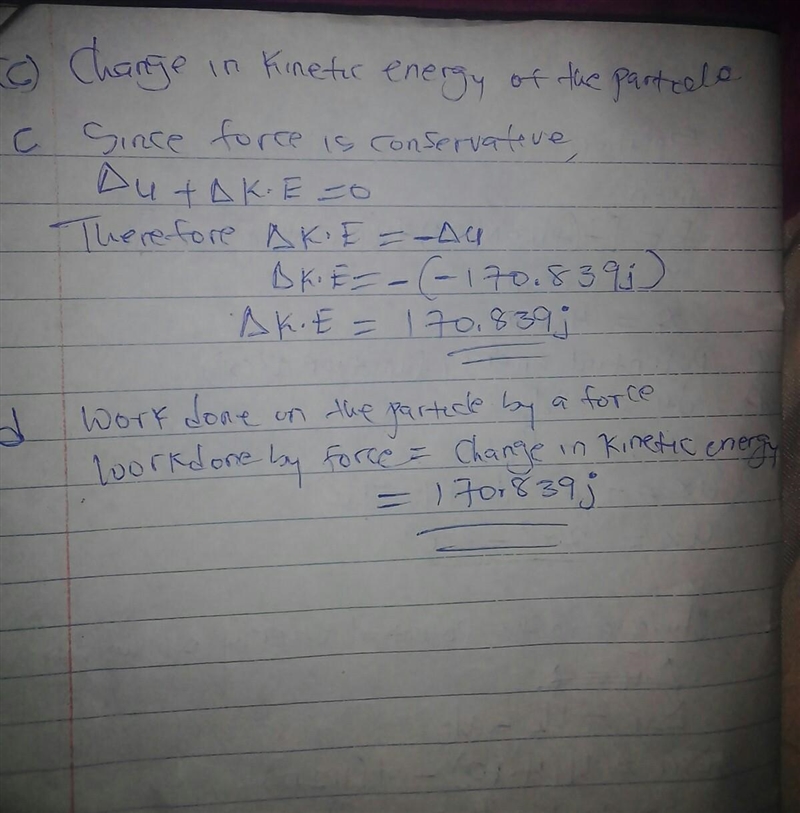 (C) Change in Kinetic energy of the particle
C Since force is conservative,
Δu + ΔK.E = 0
Therefore ΔK.E = -Δu
ΔK.E = -(-170.839j)
ΔK.E = 170.839j
d Work done on the particle by a force
Workdone by force = Change in Kinetic energy
= 170.839j